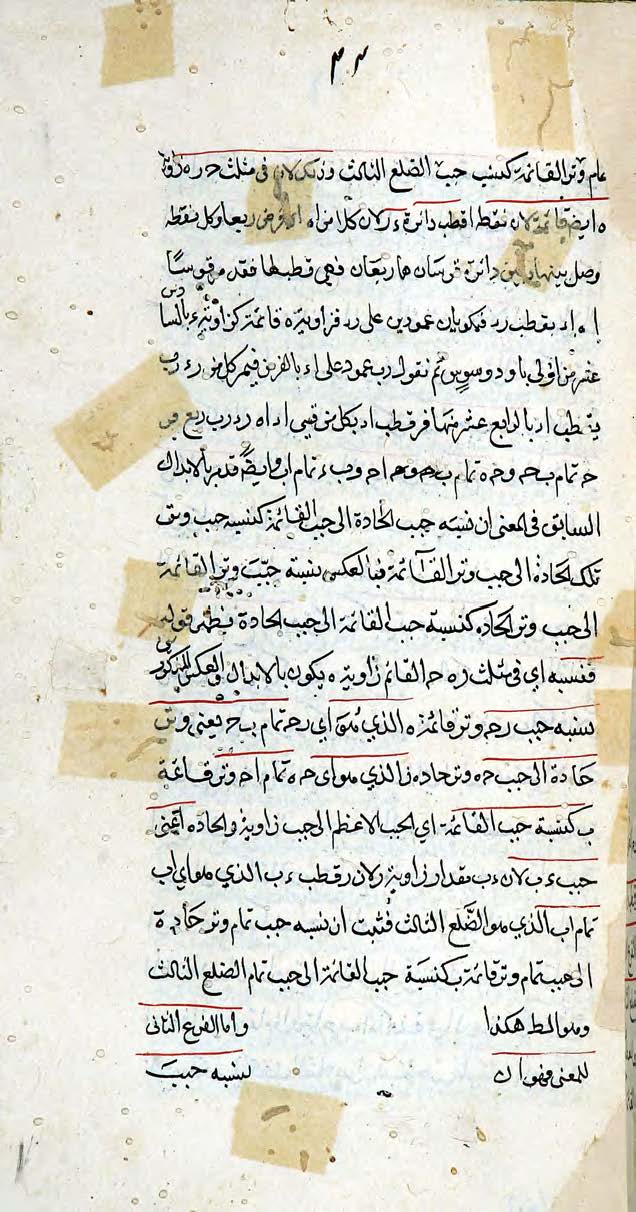 ٤٣
تمام وتر القائمة كنسبة جيب الضلع الثالث وذلك لان في مثلث ح ر ه زاوية
ه ايضا قائمة لان نقطة ا قطب دائرة ولان كلا من اه ربعا وكل نقطة
وصل بينها وبين دائرة قوسان هما ربعان فهي قطبها فقد مر قوسا
ا ه ا د بقطب ر د فيكونان عمودين على ر د فزاوية ه قائمة كزاوية بالسادس
عشر من اولى ثم نقول ر ب عمود على ا ء بالفرض فيمر كل من ر ء ر ب
بقطب ا د بالرابع عشر منها فر قطب ا د فكل من قسي ا د ا ه ر د ر ب ربع
ح ه تمام ب ح و ح ه تمام ا ح و ب ء تمام ا ب وايضا قد مر بالابدال
السابق في المعنى ان نسبة جيب الحادة الى جيب القائمة كنسبة جيب وتر
تلك الحادة الى جيب وتر القائمة فبالعكس نسبة جيب وتر القائمة
الى جيب وتر الحاده كنسبة جيب القائمة الى جيب الحادة فظهر قوله
فنسبة اي في مثلث ر ه ح القائم زاوية ه يكون بالابدال والعكس المذكور
نسبة جيب ر ح وتر قائمة ه الذي هو اي ر ح تمام ب ح يعنى وتر
حادة الى جيب ح ه وتر حاده ر الذي هو اى ح ه تمام ا ح وتر قائمة
ب كنسبة جيب القائمة اي الجيب الاعظم الى جيب زاوية ر الحاده اعنى
جيب ء ب لان ء ب مقدار زاوية ر لان ر قطب ء ب الذي هو اي ا ب
تمام اب الذي هو الضلع الثالث فثبت ان نسبة جيب تمام وتر حادة
الى جيب تمام وتر قائمة ب كنسبة جيب القائمة الى جيب تمام الضلع الثالث
وهو الخط هكذا واما الفرع الثاني
للمعنى فهو ان نسبة جيب